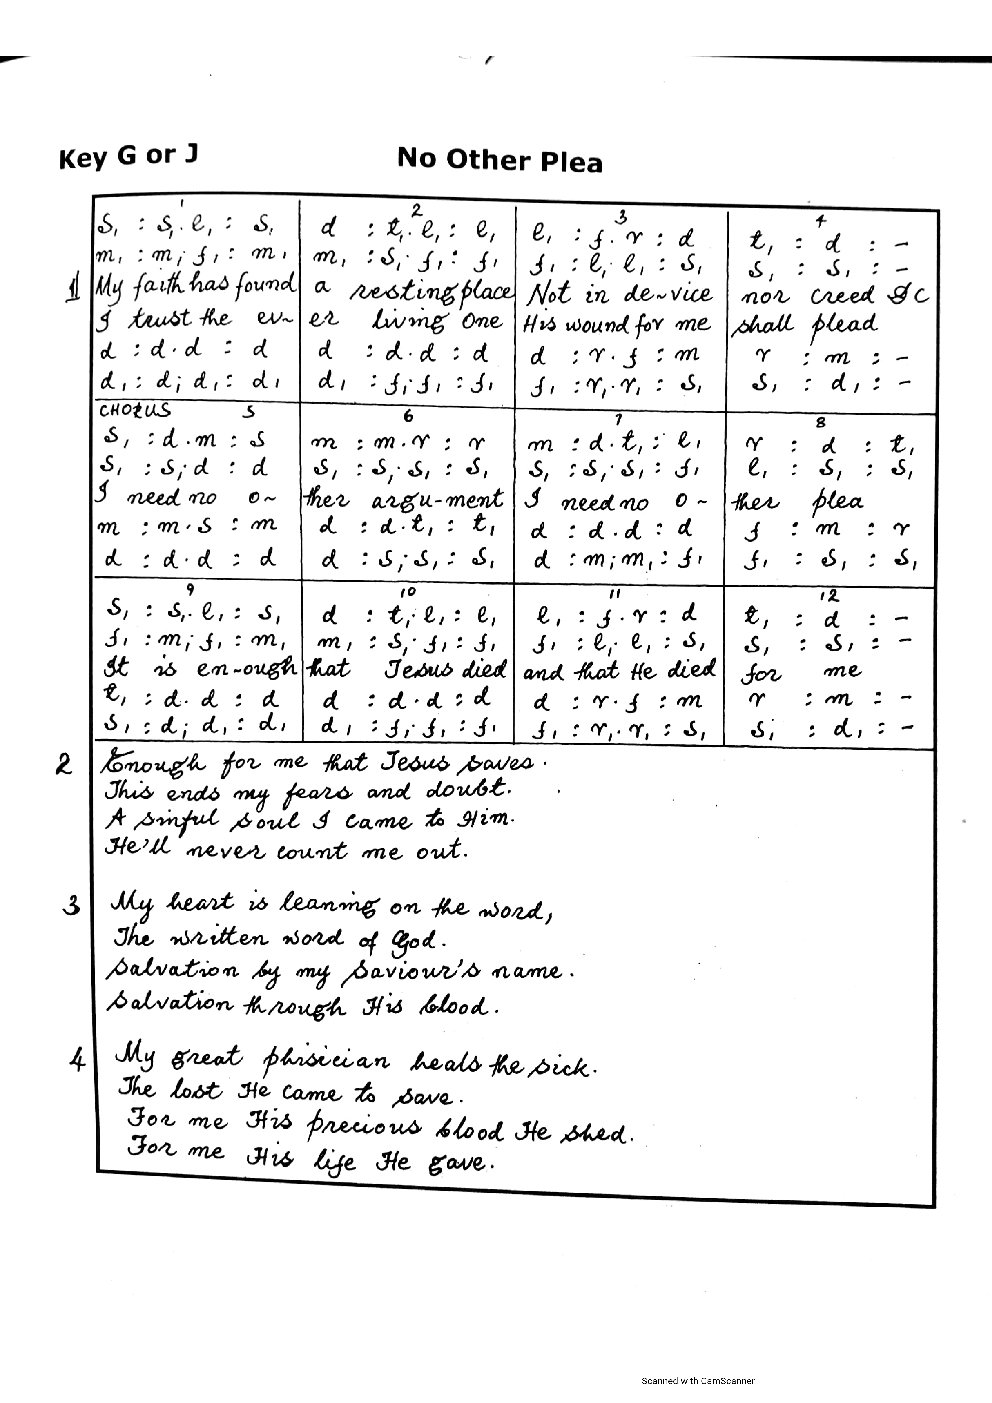 Key G or J
No Other Plea
1 2 3 4
s₁ : s₁.l₁ : s₁ d : t₁.l₁ : l₁ l₁ : f.r : d t₁ : d : -
m₁ : m₁.f₁ : m₁ m₁ : s₁.f₁ : f₁ f₁ : l₁.l₁ : s₁ s₁ : s₁ : -
1 My faith has found a resting place Not in de~vice nor creed
I trust the ev~ er living One His wound for me shall plead
d : d.d : d d : d.d : d d : r.f : m r : m : -
d₁ : d₁.d₁ : d₁ d₁ : f₁.f₁ : f₁ f₁ : r₁.r₁ : s₁ s₁ : d₁ : -
CHORUS 5 6 7 8
s₁ : d.m : s m : m.r : r m : d.t₁ : l₁ r : d : t₁
s₁ : s₁.d : d s₁ : s₁.s₁ : s₁ s₁ : s₁.s₁ : f₁ l₁ : s₁ : s₁
I need no o~ ther argu-ment I need no o~ ther plea
m : m.s : m d : d.t₁ : t₁ d : d.d : d f : m : r
d : d.d : d d : s₁.s₁ : s₁ d : m₁.m₁ : f₁ f₁ : s₁ : s₁
9 10 11 12
s₁ : s₁.l₁ : s₁ d : t₁.l₁ : l₁ l₁ : f.r : d t₁ : d : -
f₁ : m₁.f₁ : m₁ m₁ : s₁.f₁ : f₁ f₁ : l₁.l₁ : s₁ s₁ : s₁ : -
It is en-ough that Jesus died and that He died for me
t₁ : d.d : d d : d.d : d d : r.f : m r : m : -
s₁ : d₁.d₁ : d₁ d₁ : f₁.f₁ : f₁ f₁ : r₁.r₁ : s₁ s₁ : d₁ : -
2 Enough for me that Jesus saves.
This ends my fears and doubt.
A sinful soul I came to Him.
He'll never count me out.
3 My heart is leaning on the word,
The written word of God.
Salvation by my saviour's name.
Salvation through His blood.
4 My great phisician heals the sick.
The lost He came to save.
For me His precious blood He shed.
For me His life He gave.
Scanned with CamScanner